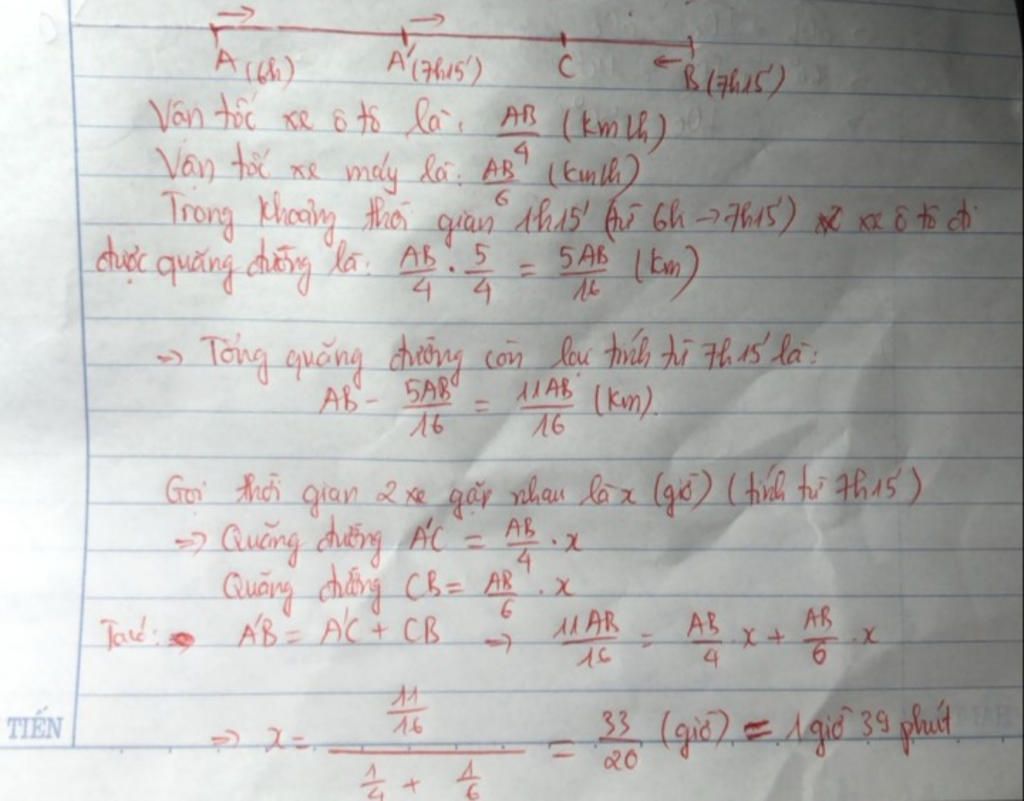 A (6h) A' (7h15') C B (7h15')
Vận tốc xe ô tô là: AB/4 (km/h)
Vận tốc xe máy là: AB/6 (km/h)
Trong khoảng thời gian 1h15' (từ 6h → 7h15') xe ô tô đi
được quãng đường là: AB/4 . 5/4 = 5AB/16 (km)
=> Tổng quãng đường còn lại tính từ 7h15' là:
AB - 5AB/16 = 11AB/16 (km).
Gọi thời gian 2 xe gặp nhau là x (giờ) (tính từ 7h15')
=> Quãng đường A'C = AB/4 . x
Quãng đường CB = AB/6 . x
Ta có: A'B = A'C + CB => 11AB/16 = AB/4 . x + AB/6 . x
TIẾN => x = (11/16)/(1/4 + 1/6) = 33/20 (giờ) = 1 giờ 39 phút